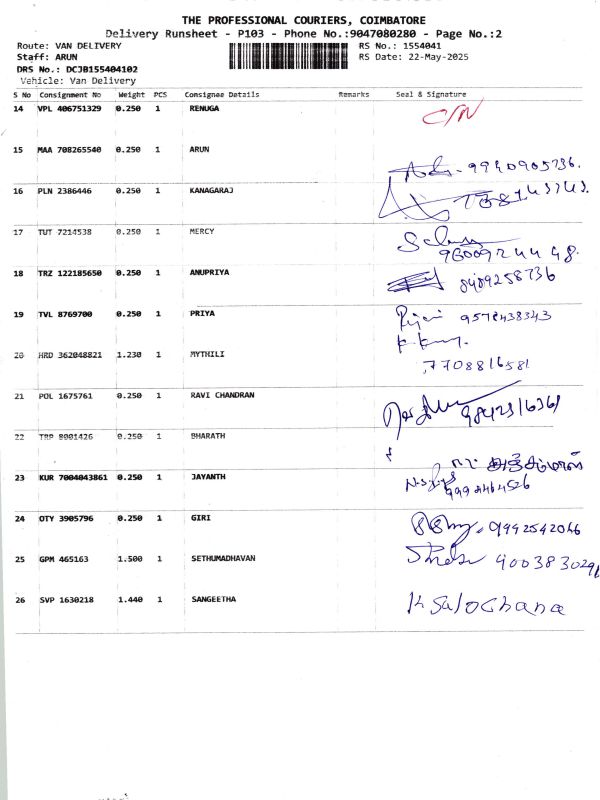 THE PROFESSIONAL COURIERS, COIMBATORE
Delivery Runsheet - P103 - Phone No.:9047080280 - Page No.:2
Route: VAN DELIVERY RS No.: 1554041
Staff: ARUN RS Date: 22-May-2025
DRS No.: DCJB155404102
Vehicle: Van Delivery
S No Consignment No Weight PCS Consignee Details Remarks Seal & Signature
14 VPL 406751329 0.250 1 RENUGA C/N
15 MAA 708265540 0.250 1 ARUN
16 PLN 2386446 0.250 1 KANAGARAJ
17 TUT 7214538 0.250 1 MERCY
18 TRZ 122185650 0.250 1 ANUPRIYA
8489258736
19 TVL 8769700 0.250 1 PRIYA 9578438343
20 HRD 362048821 1.230 1 MYTHILI
7708816581
21 POL 1675761 0.250 1 RAVI CHANDRAN
22 TRP 8001426 0.250 1 BHARATH
23 KUR 7004043861 0.250 1 JAYANTH
24 OTY 3905796 0.250 1 GIRI 9992542046
25 GPM 465163 1.500 1 SETHUMADHAVAN
26 SVP 1630218 1.440 1 SANGEETHA K Salochana